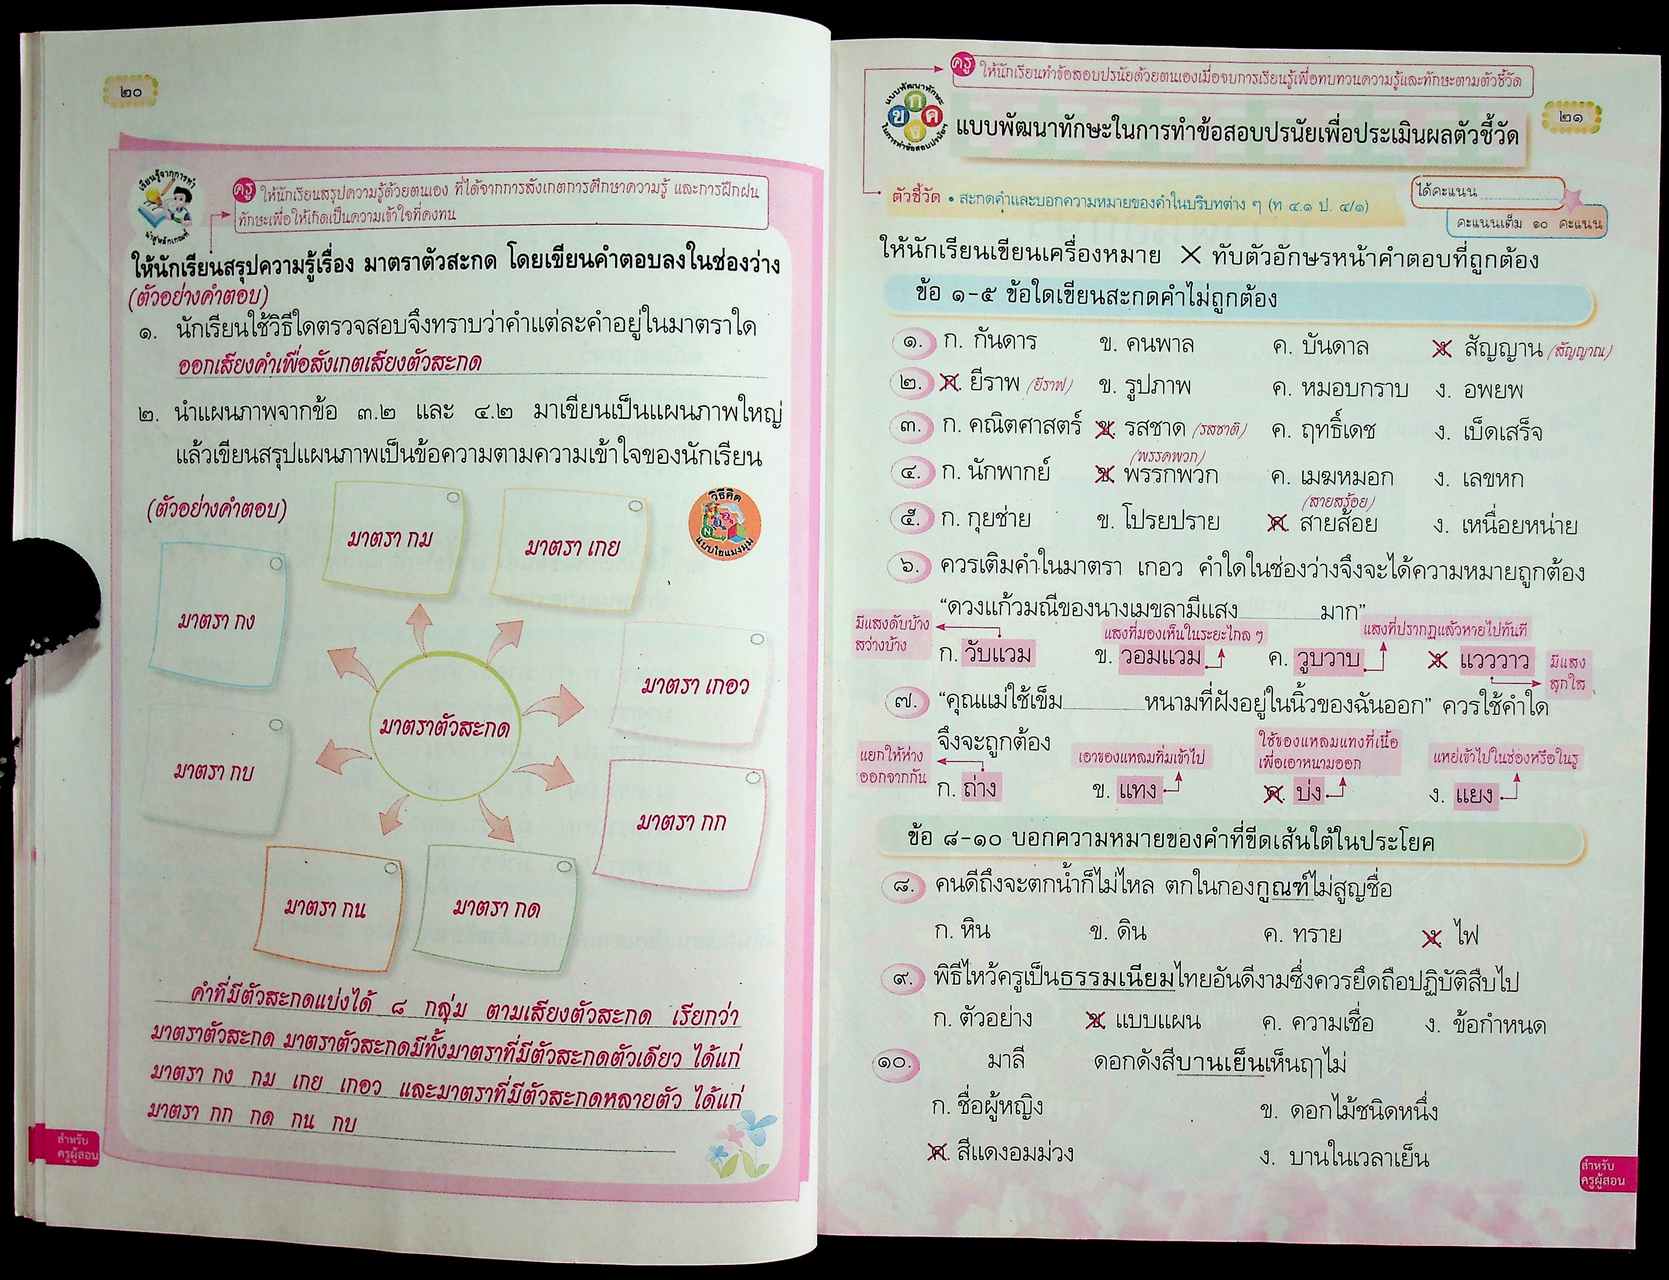 ๒๐
เรียนรู้จากการทำ
นำสู่หลักเกณฑ์
ครู ให้นักเรียนสรุปความรู้ด้วยตนเอง ที่ได้จากการสังเกตการศึกษาความรู้ และการฝึกฝน
ทักษะเพื่อให้เกิดเป็นความเข้าใจที่คงทน
ให้นักเรียนสรุปความรู้เรื่อง มาตราตัวสะกด โดยเขียนคำตอบลงในช่องว่าง
(ตัวอย่างคำตอบ)
๑. นักเรียนใช้วิธีใดตรวจสอบจึงทราบว่าคำแต่ละคำอยู่ในมาตราใด
ออกเสียงคำเพื่อสังเกตเสียงตัวสะกด
๒. นำแผนภาพจากข้อ ๓.๒ และ ๔.๒ มาเขียนเป็นแผนภาพใหญ่
แล้วเขียนสรุปแผนภาพเป็นข้อความตามความเข้าใจของนักเรียน
(ตัวอย่างคำตอบ)
วิธีคิด
แบบใยแมงมุม
มาตรา กม
มาตรา เกย
มาตรา กง
มาตรา เกอว
มาตราตัวสะกด
มาตรา กบ
มาตรา กก
มาตรา กน
มาตรา กด
คำที่มีตัวสะกดแบ่งได้ ๘ กลุ่ม ตามเสียงตัวสะกด เรียกว่า
มาตราตัวสะกด มาตราตัวสะกดมีทั้งมาตราที่มีตัวสะกดตัวเดียว ได้แก่
มาตรา กง กม เกย เกอว และมาตราที่มีตัวสะกดหลายตัว ได้แก่
มาตรา กก กด กน กบ
สำหรับ
ครูผู้สอน
ครู ให้นักเรียนทำข้อสอบปรนัยด้วยตนเองเมื่อจบการเรียนรู้เพื่อทบทวนความรู้และทักษะตามตัวชี้วัด
๒๑
แบบพัฒนาทักษะ
ก ข ค ง
ในการทำข้อสอบปรนัยฯ
แบบพัฒนาทักษะในการทำข้อสอบปรนัยเพื่อประเมินผลตัวชี้วัด
ตัวชี้วัด • สะกดคำและบอกความหมายของคำในบริบทต่าง ๆ (ท ๔.๑ ป. ๔/๑)
ได้คะแนน
คะแนนเต็ม ๑๐ คะแนน
ให้นักเรียนเขียนเครื่องหมาย ✕ ทับตัวอักษรหน้าคำตอบที่ถูกต้อง
ข้อ ๑-๕ ข้อใดเขียนสะกดคำไม่ถูกต้อง
๑. ก. กันดาร ข. คนพาล ค. บันดาล ง. สัญญาน (สัญญาณ)
๒. ก. ยีราพ (ยีราฟ) ข. รูปภาพ ค. หมอบกราบ ง. อพยพ
๓. ก. คณิตศาสตร์ ข. รสชาด (รสชาติ) ค. ฤทธิ์เดช ง. เบ็ดเสร็จ
(พรรคพวก)
๔. ก. นักพากย์ ข. พรรกพวก ค. เมฆหมอก ง. เลขหก
(สายสร้อย)
๕. ก. กุยช่าย ข. โปรยปราย ค. สายส้อย ง. เหนื่อยหน่าย
๖. ควรเติมคำในมาตรา เกอว คำใดในช่องว่างจึงจะได้ความหมายถูกต้อง
“ดวงแก้วมณีของนางเมขลามีแสง มาก”
มีแสงดับบ้าง
สว่างบ้าง
แสงที่มองเห็นในระยะไกล ๆ
แสงที่ปรากฏแล้วหายไปทันที
ก. วับแวม ข. วอมแวม ค. วูบวาบ ง. แวววาว
มีแสง
สุกใส
๗. “คุณแม่ใช้เข็ม หนามที่ฝังอยู่ในนิ้วของฉันออก” ควรใช้คำใด
จึงจะถูกต้อง
แยกให้ห่าง
ออกจากกัน
เอาของแหลมทิ่มเข้าไป
ใช้ของแหลมแทงที่เนื้อ
เพื่อเอาหนามออก
แหย่เข้าไปในช่องหรือในรู
ก. ถ่าง ข. แทง ค. บ่ง ง. แยง
ข้อ ๘-๑๐ บอกความหมายของคำที่ขีดเส้นใต้ในประโยค
๘. คนดีถึงจะตกน้ำก็ไม่ไหล ตกในกองกูณฑ์ไม่สูญชื่อ
ก. หิน ข. ดิน ค. ทราย ง. ไฟ
๙. พิธีไหว้ครูเป็นธรรมเนียมไทยอันดีงามซึ่งควรยึดถือปฏิบัติสืบไป
ก. ตัวอย่าง ข. แบบแผน ค. ความเชื่อ ง. ข้อกำหนด
๑๐. มาลี ดอกดังสีบานเย็นเห็นฤๅไม่
ก. ชื่อผู้หญิง ข. ดอกไม้ชนิดหนึ่ง
ค. สีแดงอมม่วง ง. บานในเวลาเย็น
สำหรับ
ครูผู้สอน